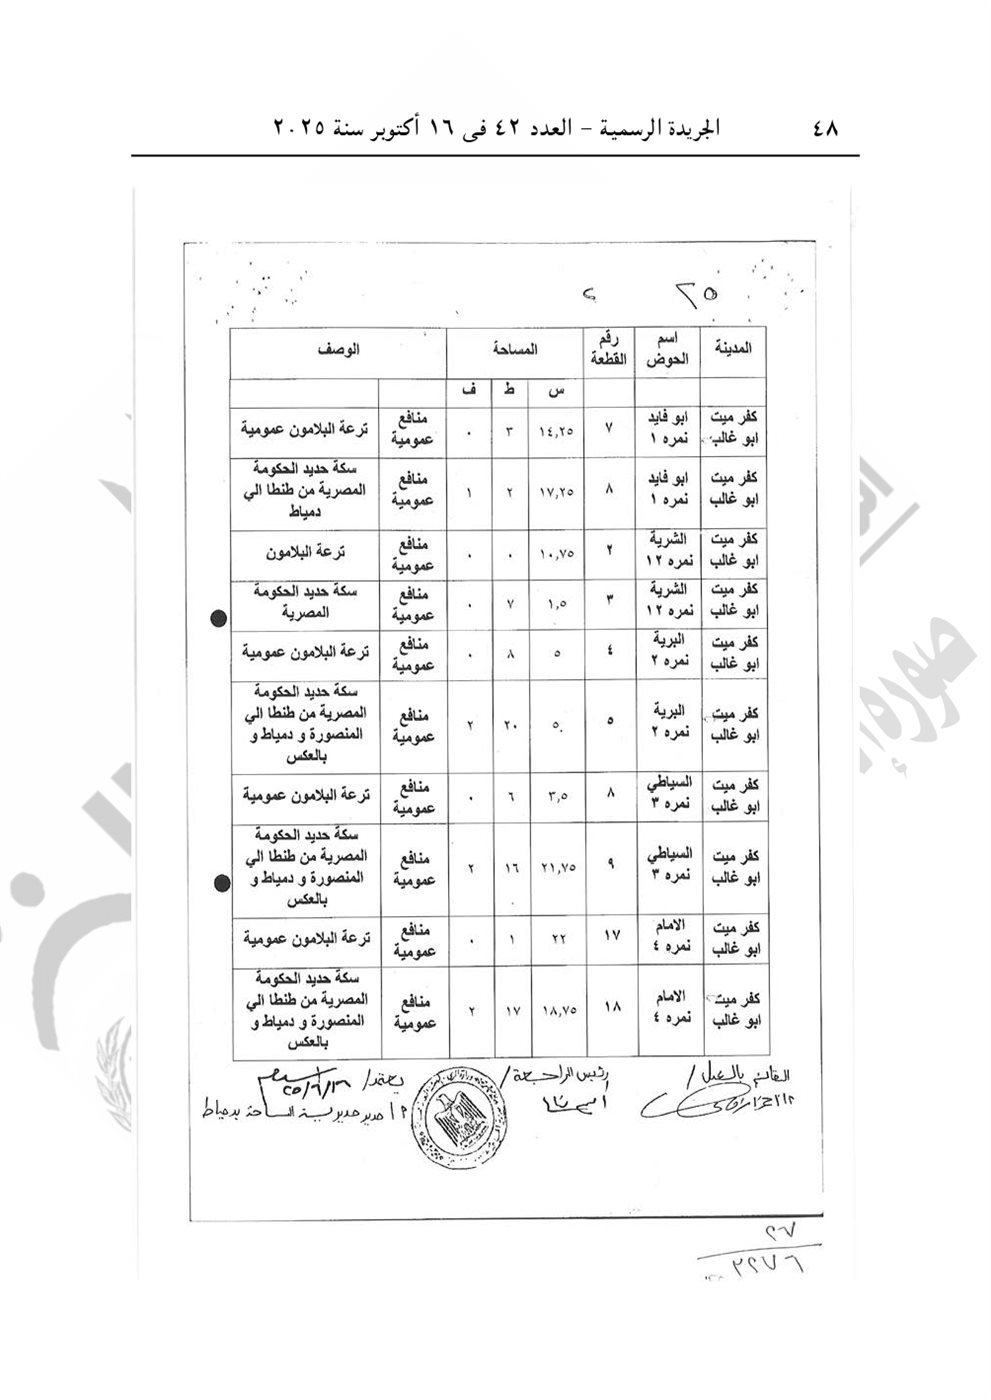 ٤٨ الجريدة الرسمية – العدد ٤٢ فى ١٦ أكتوبر سنة ٢٠٢٥
٢٥
المدينة اسم الحوض رقم القطعة المساحة الوصف
س ط ف
كفر ميت ابو غالب ابو فايد نمره ١ ٧ ١٤,٢٥ ٣ ٠ منافع عمومية ترعة البلامون عمومية
كفر ميت ابو غالب ابو فايد نمره ١ ٨ ١٧,٢٥ ٢ ١ منافع عمومية سكة حديد الحكومة المصرية من طنطا الي دمياط
كفر ميت ابو غالب الشرية نمره ١٢ ٢ ١٠,٧٥ ٠ ٠ منافع عمومية ترعة البلامون
كفر ميت ابو غالب الشرية نمره ١٢ ٣ ١,٥ ٧ ٠ منافع عمومية سكة حديد الحكومة المصرية
كفر ميت ابو غالب البرية نمره ٢ ٤ ٥ ٨ ٠ منافع عمومية ترعة البلامون عمومية
كفر ميت ابو غالب البرية نمره ٢ ٥ ٥. ٢٠ ٢ منافع عمومية سكة حديد الحكومة المصرية من طنطا الي المنصورة و دمياط و بالعكس
كفر ميت ابو غالب السياطي نمره ٣ ٨ ٣,٥ ٦ ٠ منافع عمومية ترعة البلامون عمومية
كفر ميت ابو غالب السياطي نمره ٣ ٩ ٢١,٧٥ ١٦ ٢ منافع عمومية سكة حديد الحكومة المصرية من طنطا الي المنصورة و دمياط و بالعكس
كفر ميت ابو غالب الامام نمره ٤ ١٧ ٢٢ ١ ٠ منافع عمومية ترعة البلامون عمومية
كفر ميت ابو غالب الامام نمره ٤ ١٨ ١٨,٧٥ ١٧ ٢ منافع عمومية سكة حديد الحكومة المصرية من طنطا الي المنصورة و دمياط و بالعكس
القائم بالعمل / رئيس المراجعة / يعتمد /
م / مدير مديرية المساحة بدمياط
٢٦
٢٢٧٦